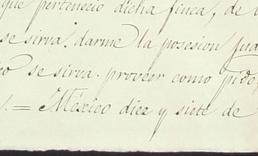 que perteneció dicha finca, de
se sirva darme la posesion
se sirva proveer como pido
= México diez y siete de